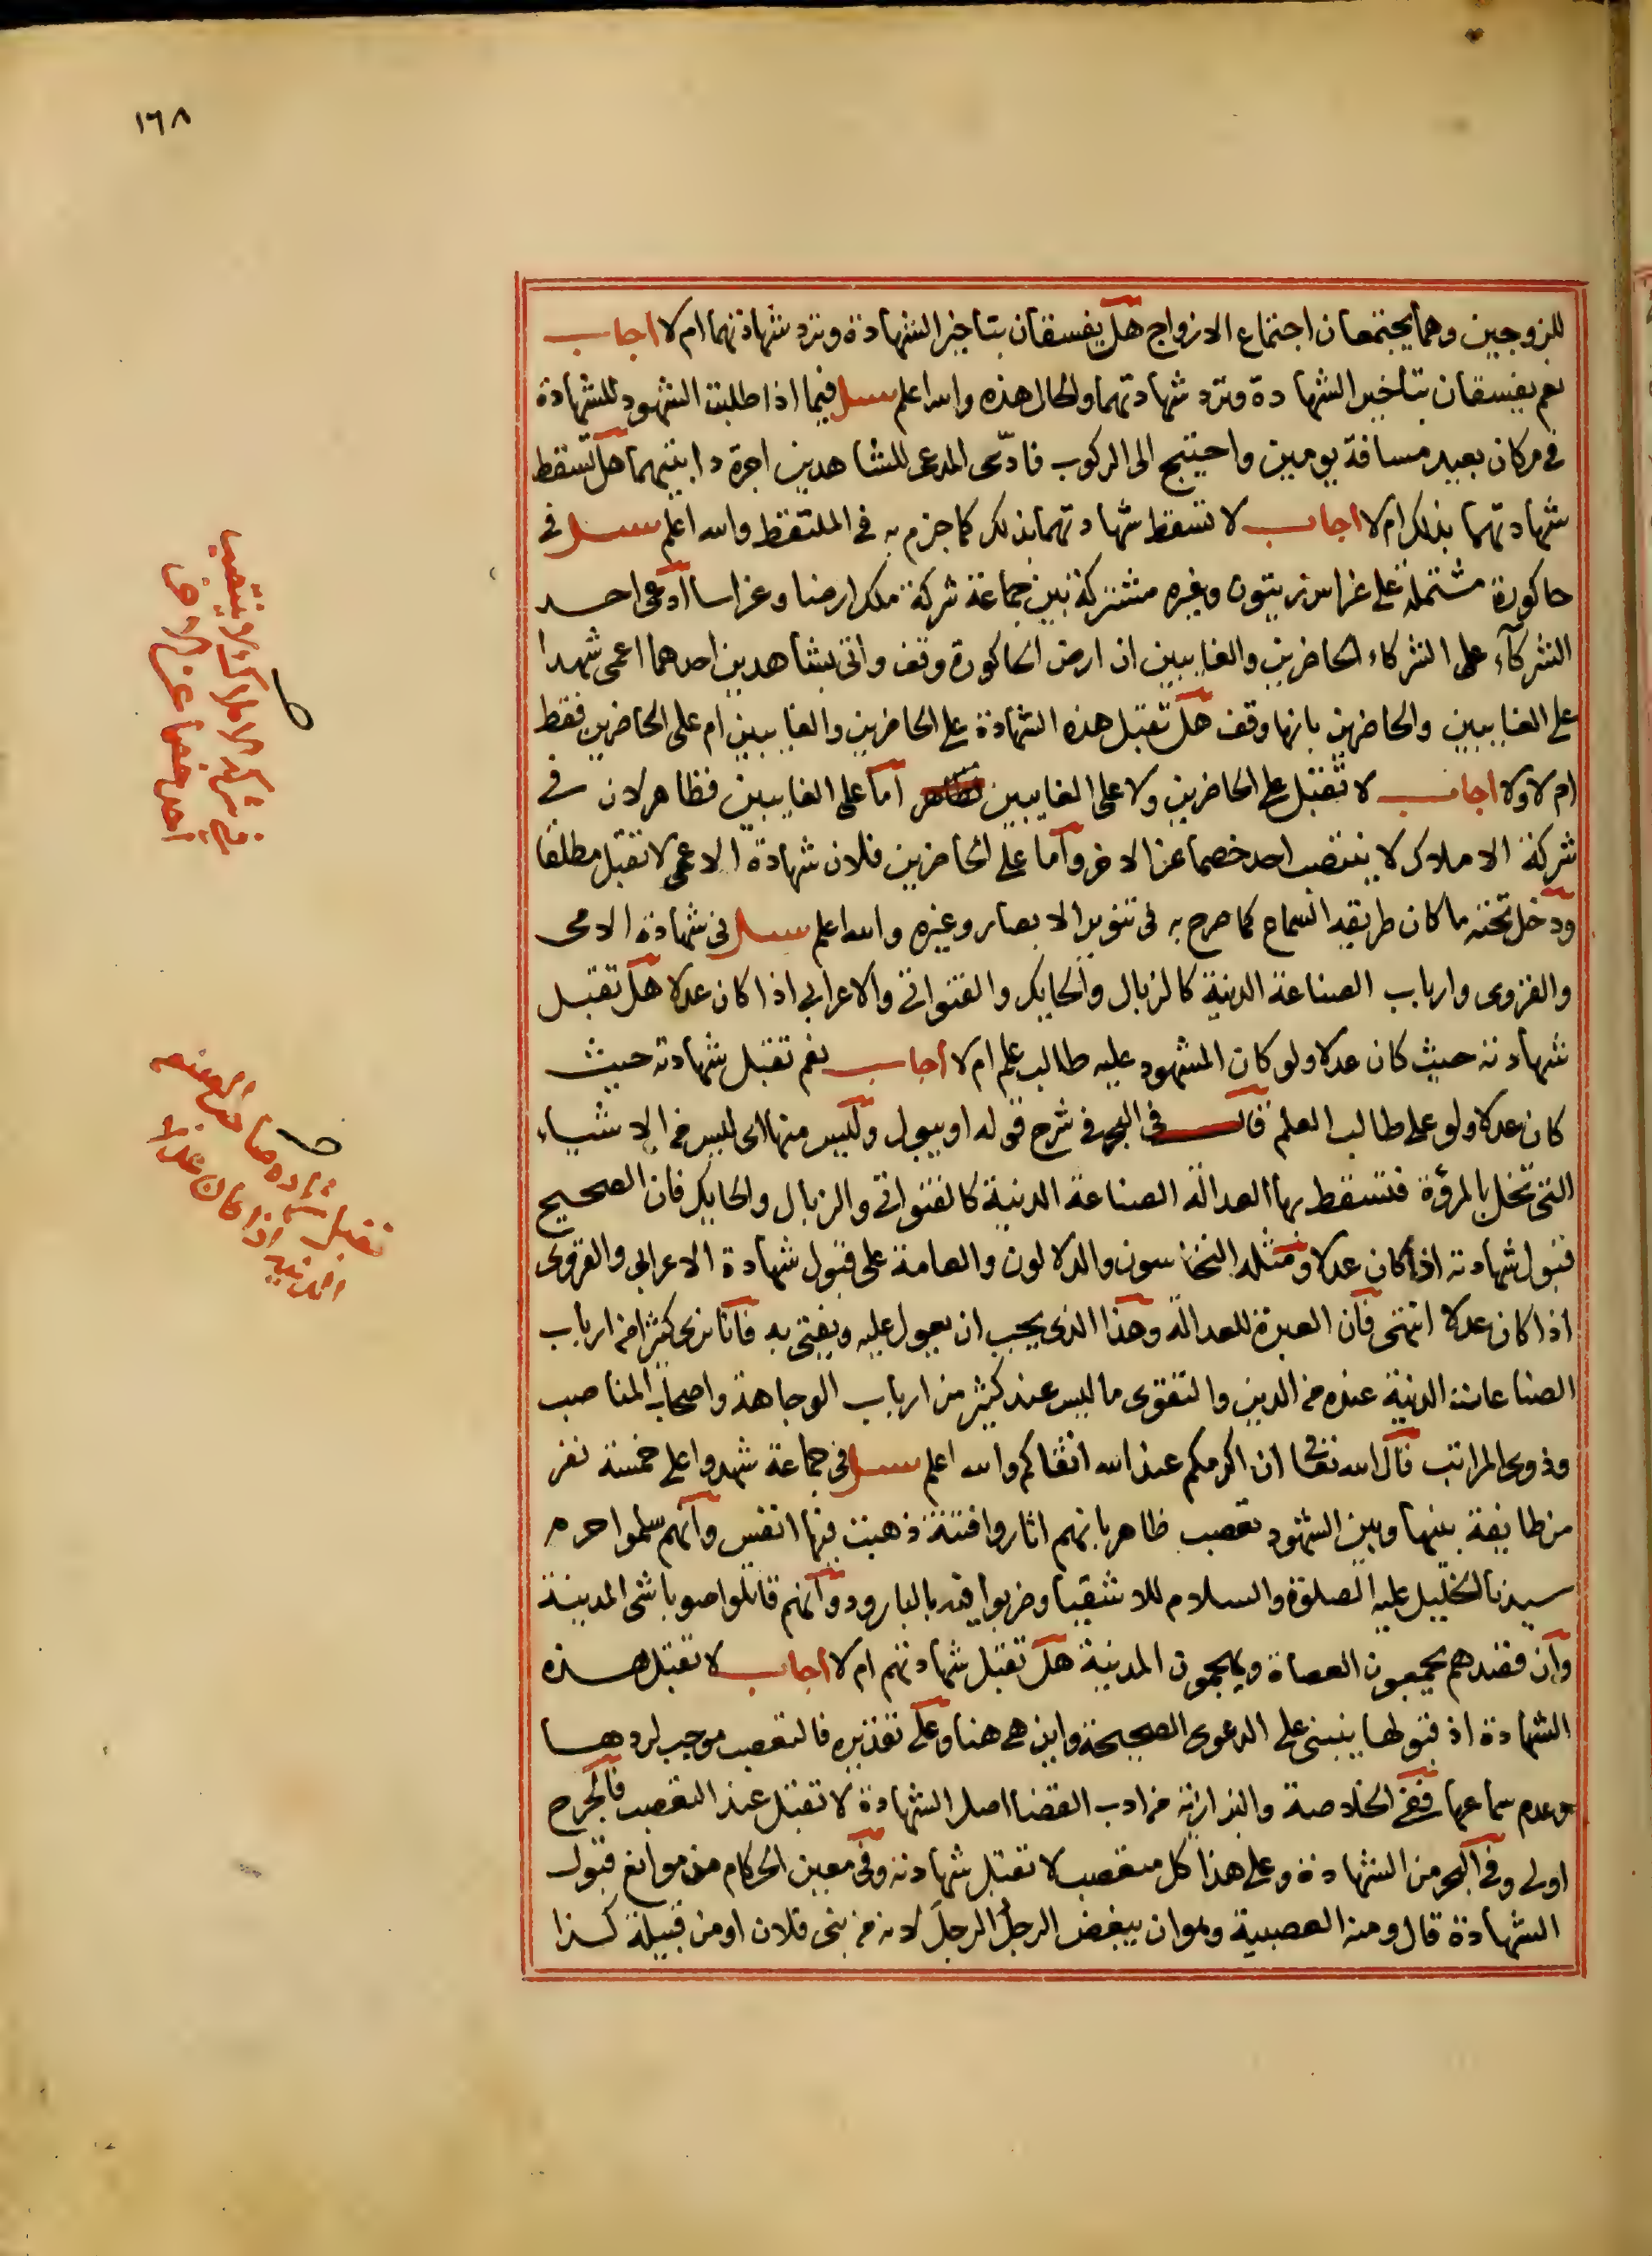 ١٦٨
للزوجين وهما يجتمعان اجتماع الازواج هل يفسقان بتاخير الشهادة وترد شهادتهما ام لا اجاب
نعم يفسقان بتاخير الشهادة وترد شهادتهما والحال هذه والله اعلم سئل فيما اذا طلبت الشهود للشهادة
في مكان بعيد مسافة يومين واحتيج الى الركوب فادى المدعى للشاهدين اجرة دابتيهما هل تسقط
شهادتهما بذلك ام لا اجاب لا تسقط شهادتهما بذلك كما جزم به في الملتقط والله اعلم سئل في
حاكورة مشتملة على غراس زيتون وغيره مشتركة بين جماعة شركة ملك ارضا وغراسا ادعى احد
الشركآء على الشركاء الحاضرين والغايبين ان ارض الحاكورة وقف واتى بشاهدين احدهما اعمى شهدا
على الغايبين والحاضرين بانها وقف هل تقبل هذه الشهادة على الحاضرين والغايبين ام على الحاضرين فقط
ام لا ولا اجاب لا تقبل على الحاضرين ولا على الغايبين اما على الغايبين فظاهر لان في
شركة الاملاك لا ينتصب احد خصما عن الاخر واما على الحاضرين فلان شهادة الاعمى لا تقبل مطلقا
ودخل تحته ما كان طريقه السماع كما صرح به في تنوير الابصار وغيره والله اعلم سئل في شهادة الامى
والقروى وارباب الصناعة الدنية كالزبال والحايك والقنواتى والاعرابى اذا كان عدلا هل تقبل
شهادته حيث كان عدلا ولو كان المشهود عليه طالب علم ام لا اجاب نعم تقبل شهادته حيث
كان عدلا ولو على طالب العلم قال في البحر في شرح قوله او يبول وليس منها اى ليس من الاشياء
التى تخل بالمروة فتسقط بها العدالة الصناعة الدنية كالقنواتى والزبال والحايك فان الصحيح
قبول شهادته اذا كان عدلا ومثله النخاسون والدلالون والعامة على قبول شهادة الاعرابى والقروى
اذا كان عدلا انتهى فان العبرة للعدالة وهذا الذى يجب ان يعول عليه ويفتى به فانا نرى كثيرا من ارباب
الصناعات الدنية عنده من الدين والتقوى ما ليس عند كثير من ارباب الوجاهة واصحاب المناصب
وذوى المراتب قال الله تعالى ان اكرمكم عند الله اتقاكم والله اعلم سئل في جماعة شهدوا على خمسة نفر
من طايفة بينها وبين الشهود تعصب ظاهر بانهم اثاروا فتنة ذهبت فيها انفس وانهم سلموا حرم
سيدنا الخليل عليه الصلوة والسلام للاشقيا وضربوا فيه بالبارود وانهم قاتلوا صوباشى المدينة
وان قصدهم يجمعون العصاة ويهجمون المدينة هل تقبل شهادتهم ام لا اجاب لا تقبل هذه
الشهادة اذ قبولها ينبنى على الدعوى الصحيحة واين هى هنا وعلى تقديره فالتعصب موجب لردها
وعدم سماعها ففي الخلاصة والبزازية من ادب القضا اصل الشهادة لا تقبل عند التعصب فالجرح
اولى وفي البحر من الشهادة وعلى هذا كل متعصب لا تقبل شهادته وفي معين الحكام من موانع قبول
الشهادة قال ومنه العصبية وهو ان يبغض الرجل الرجل لانه من بنى فلان او من قبيلة كذا
في شركة الاملاك لا ينتصب
احد خصما عن الاخر
تقبل شهادة صاحب الصنعة
الدنية اذا كان عدلا